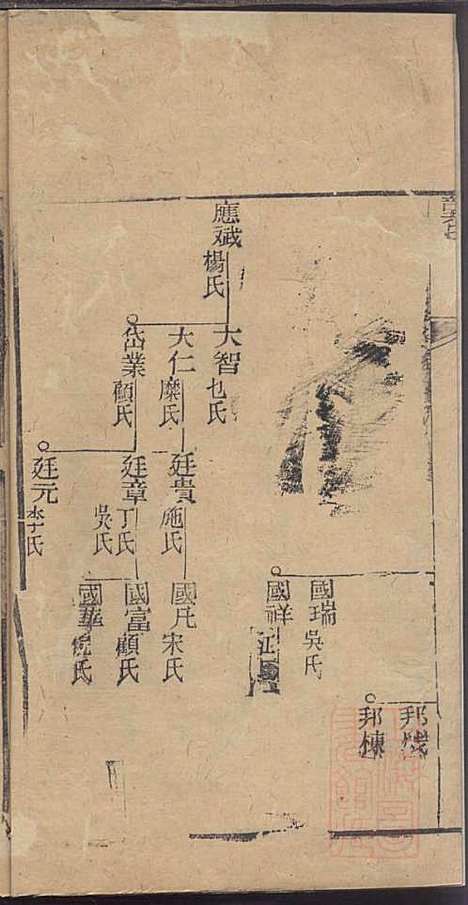 邦棟
國瑞
吳氏
國祥
應斌
楊氏
大智
大仁
糜氏
岱業
顧氏
廷貴
施氏
廷章
丁氏
吳氏
廷元
李氏
國凡
宋氏
國富
顧氏
國華